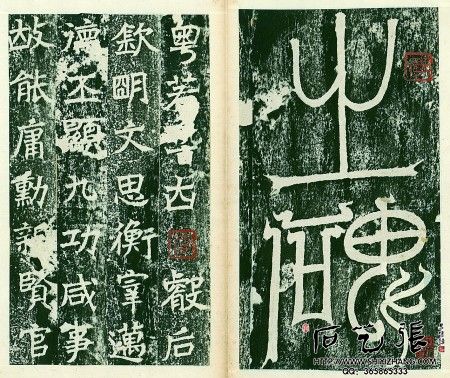 之
碑
粵若古叡后
欽明文思衡宰邁
濟丕顯九功咸事
故能庸勳親賢官
石艺張
QQ: 365865333